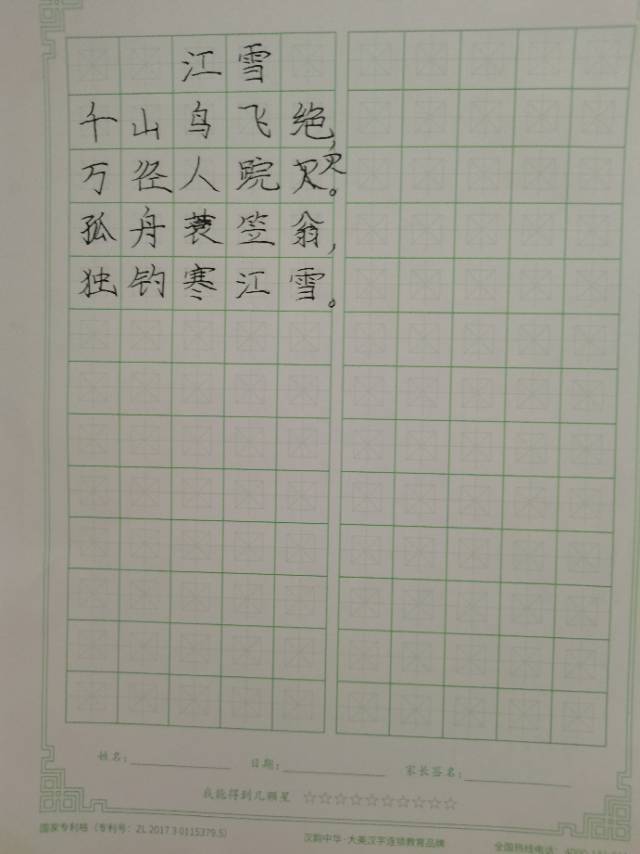 江雪
千山鸟飞绝,
万径人灭。
孤舟蓑笠翁,
独钓寒江雪。
姓名: 日期: 家长签名:
我能得到几颗星 ☆☆☆☆☆☆☆☆☆☆
国家专利格（专利号：ZL 2017 3 0115379.5） 汉韵中华·大美汉字连锁教育品牌 全国热线电话：